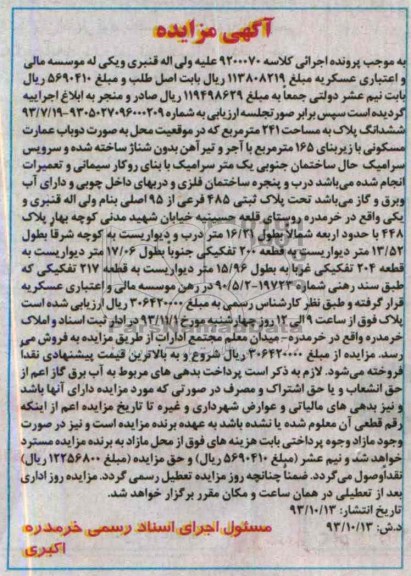 آگهی مزایده
به موجب پرونده اجرائی کلاسه ۹۲۰۰۰۷۰ علیه ولی اله قنبری ویکی له موسسه مالی
و اعتباری عسکریه مبلغ ۱۱۳۸۰۸۲۱۹ ریال بابت اصل طلب و مبلغ ۵۶۹۰۴۱۰ ریال
بابت نیم عشر دولتی جمعاً به مبلغ ۱۱۹۴۹۸۶۲۹ ریال صادر و منجر به ابلاغ اجراییه
گردیده است سپس برابر صورتجلسه ارزیابی به شماره ۹۳۰۵۰۲۷۰۹۶۰۰۰۲۰۹-۹۳/۷/۱۹
ششدانگ پلاک به مساحت ۲۴۱ مترمربع که در موقعیت محل به صورت دوباب عمارت
مسکونی با زیربنای ۱۶۵ مترمربع با آجر و تیر آهن بدون شناژ ساخته شده و سرویس
سرامیک حال ساختمان جنوبی یک متر سرامیک با بنای روکار سیمانی و تعمیرات
انجام شده می‌باشد درب و پنجره ساختمان فلزی و دربهای داخل چوبی و دارای آب
وبرق و گاز می‌باشد تحت پلاک ثبتی ۴۸۵ فرعی از ۹۵ اصلی بنام ولی اله قنبری و
یکی واقع در خرمدره روستای قلعه حسینیه خیابان شهید مدنی کوچه بهار پلاک
۴۴۸ با حدود اربعه شمالاً بطول ۱۶/۲۱ متر درب و دیواریست به کوچه شرقاً بطول
۱۳/۵۲ متر دیواریست به قطعه ۲۰۰ تفکیکی جنوبا بطول ۱۷/۰۶ متر دیواریست به
قطعه ۲۰۴ تفکیکی غربا به طول ۱۵/۹۶ متر دیواریست به قطعه ۲۱۷ تفکیکی که
طبق سند رهنی شماره ۱۹۷۲۳-۹۰/۵/۲ در رهن موسسه مالی و اعتباری عسکریه
قرار گرفته و طبق نظر کارشناس رسمی به مبلغ ۳۰۶۴۲۰۰۰۰ ریال ارزیابی شده است
پلاک فوق از ساعت ۹ الی ۱۲ روز چهارشنبه مورخ ۹۳/۱۱/۱ در ادار ثبت اسناد و املاک
خرمدره واقع در خرمدره - میدان معلم مجتمع ادارات از طریق مزایده به فروش می
رسد. مزایده از مبلغ ۳۰۶۴۲۰۰۰۰ ریال شروع و به بالاترین قیمت پیشنهادی نقدا
فروخته می‌شود. لازم به ذکر است پرداخت بدهی های مربوط به آب برق گاز اعم از
حق انشعاب و یا حق اشتراک و مصرف در صورتی که مورد مزایده دارای آنها باشد
و نیز بدهی های مالیاتی و عوارض شهرداری و غیره تا تاریخ مزایده اعم از اینکه
رقم قطعی آن معلوم شده یا نشده باشد به عهده برنده مزایده است و نیز در صورت
وجود مازاد وجوه پرداختی بابت هزینه های فوق از محل مازاد به برنده مزایده مسترد
خواهد شد و نیم عشر (مبلغ ۵۶۹۰۴۱۰ ریال) و حق مزایده (مبلغ ۱۲۲۵۶۸۰۰ ریال)
نقداً وصول می‌گردد. ضمناً چنانچه روز مزایده تعطیل رسمی گردد. مزایده روز اداری
بعد از تعطیلی در همان ساعت و مکان مقرر برگزار خواهد شد.
تاریخ انتشار: ۹۳/۱۰/۱۳
د.ش: ۹۳/۱۰/۱۳
مسئول اجرای اسناد رسمی خرمدره
اکبری